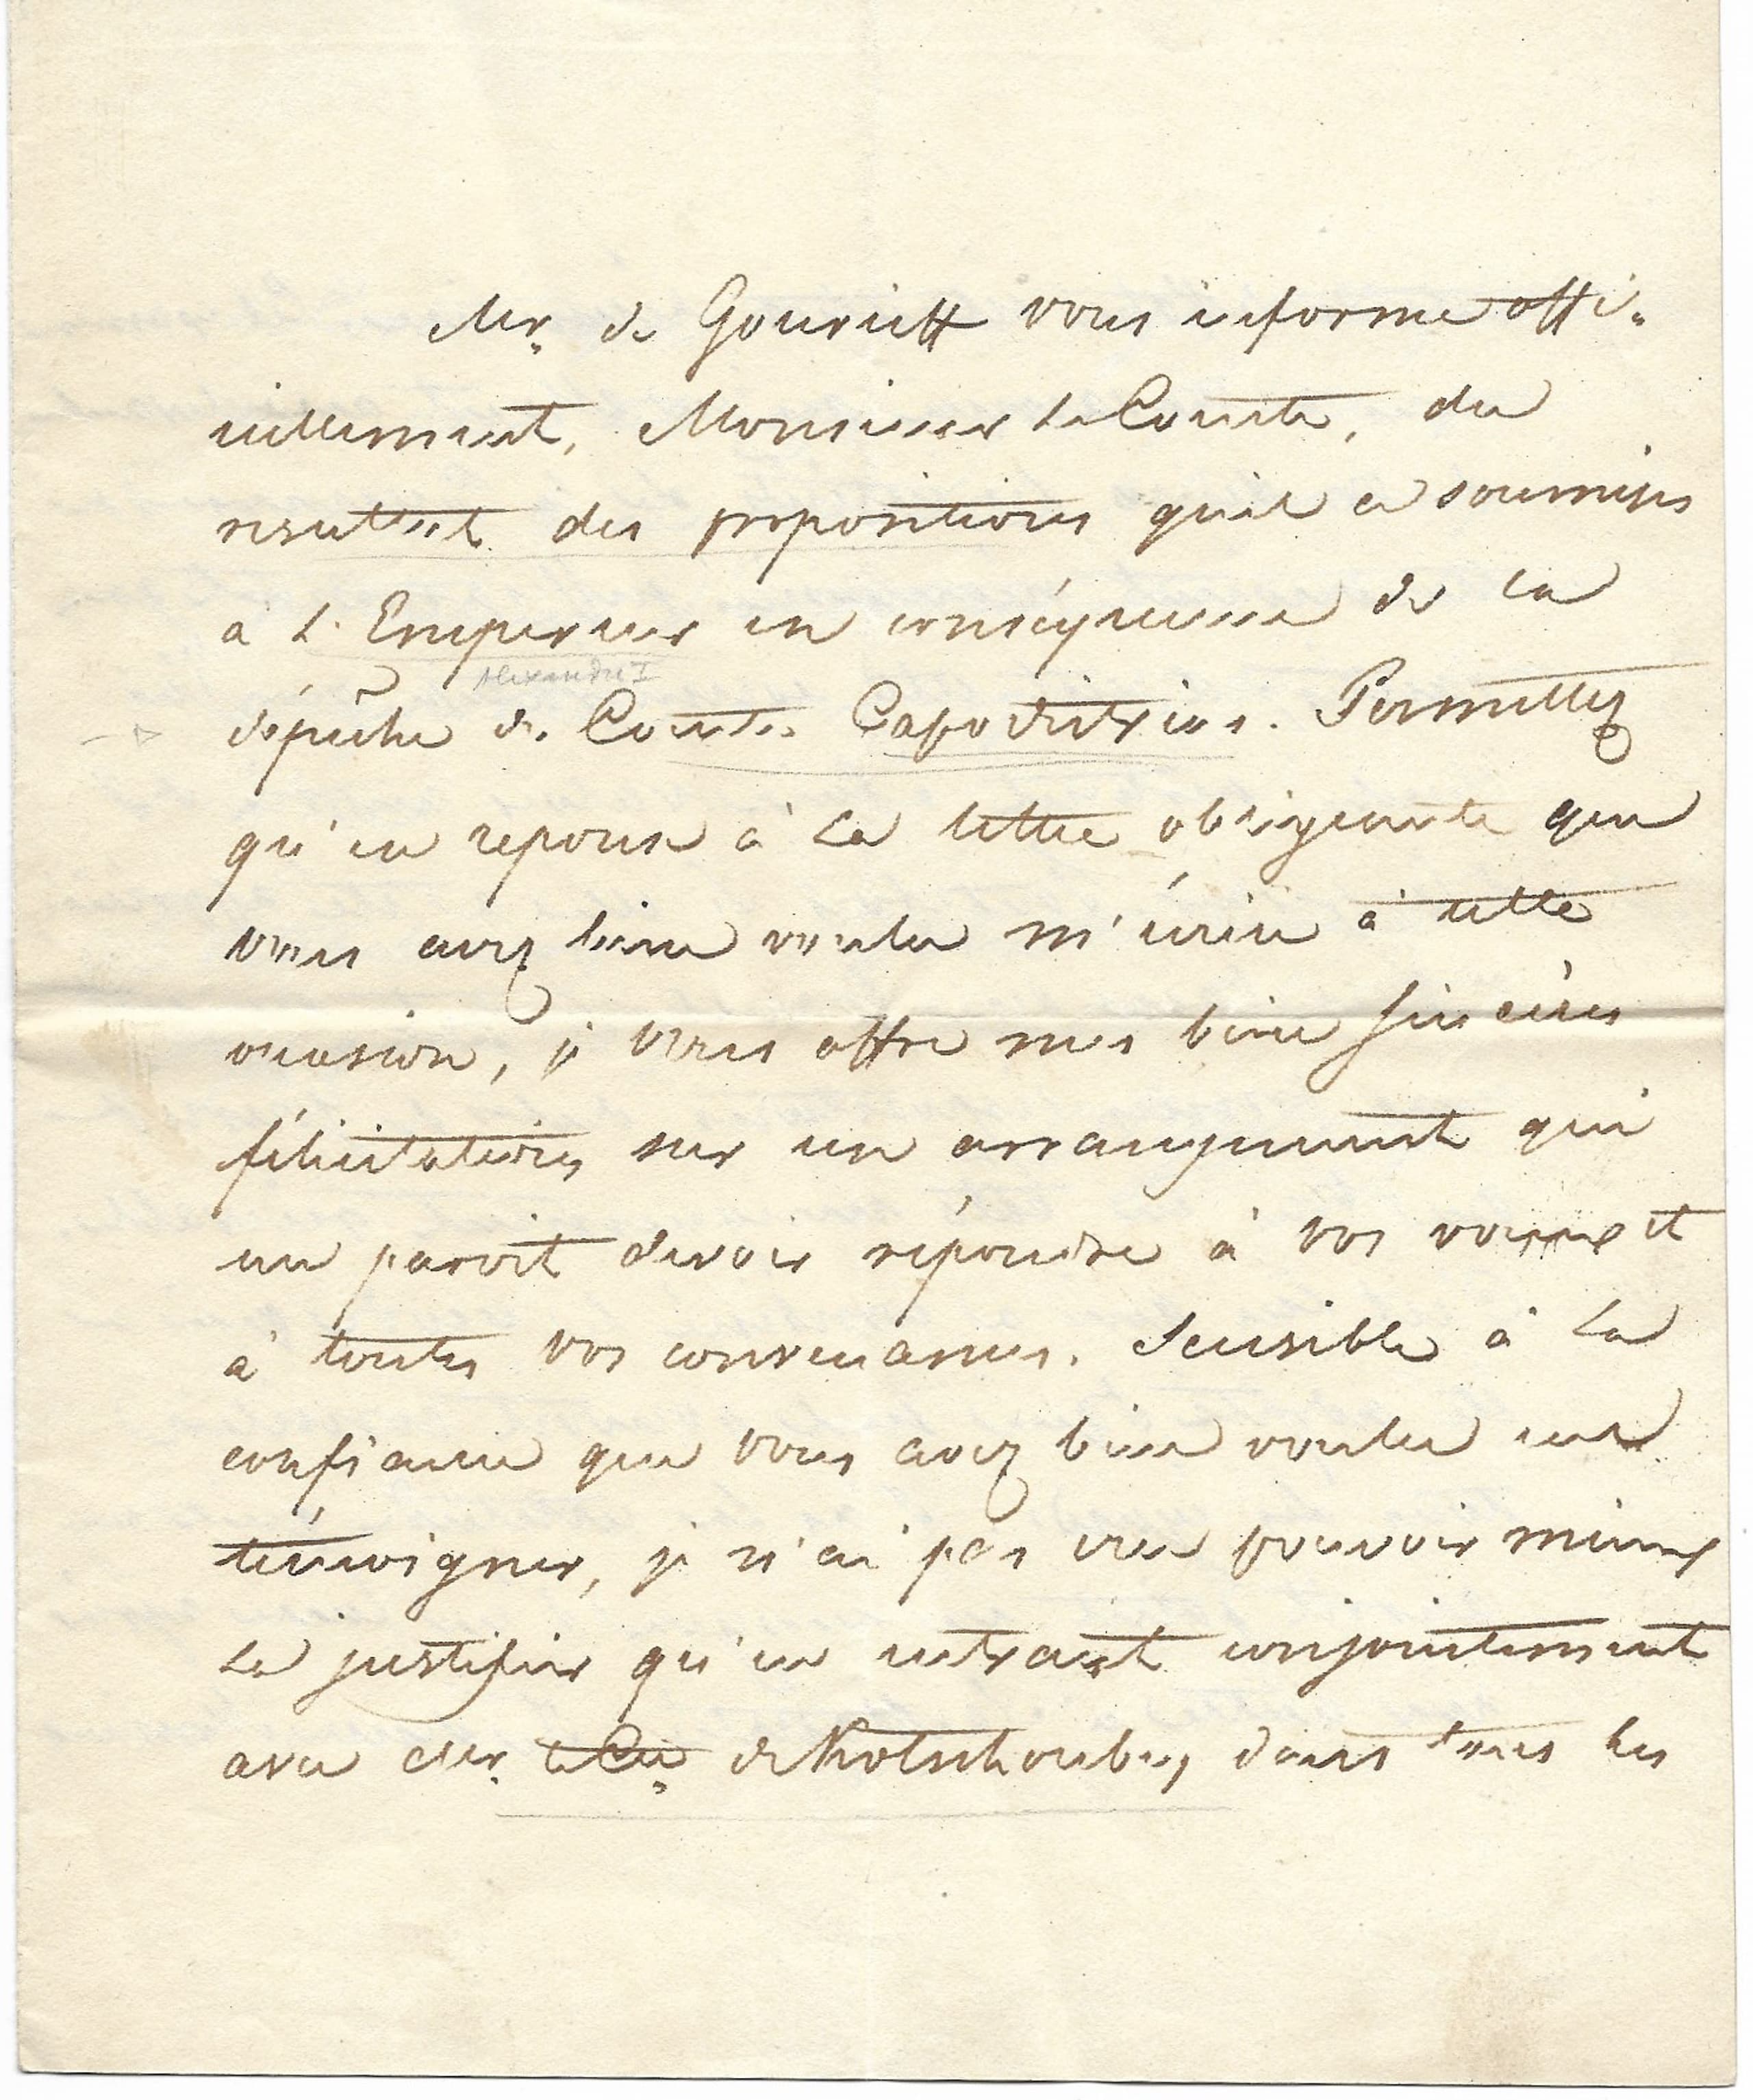 Mr. de Gourieff vous informe offi-
ciellement, Monsieur le Comte, du
resultat des propositions qu'il a soumises
à L'Empereur en conséquence de la
Alexandre I
dépêche du Comte Capodistrias. Permettez
qu'en reponse à la lettre obligeante que
vous avez bien voulu m'écrire à cette
occasion, je vous offre mes bien sincères
félicitations sur un arrangement qui
me paroit devoir répondre à vos voeux et
à toutes vos convenances. Sensible à la
confiance que vous avez bien voulu me
témoigner, je n'ai pas cru pouvoir mieux
la justifier qu'en entrant conjointement
avec Mr. le Cte. de Kotschoubey dans tous les